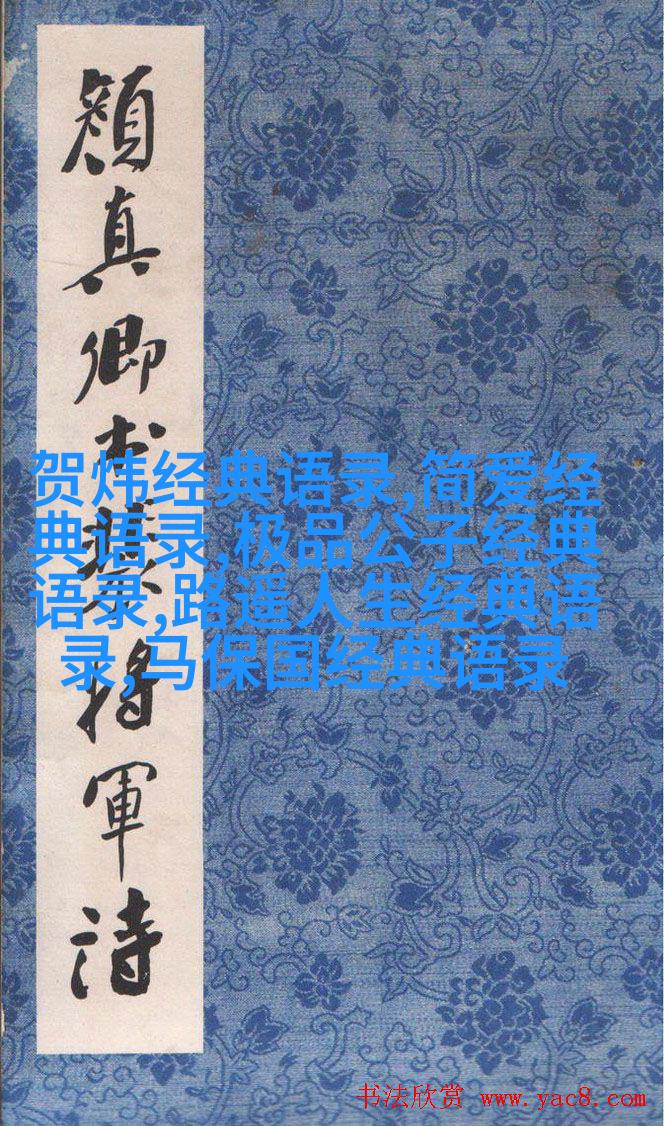 顏真卿书裴将軍詩
贺炜经典语录,简爱经
典语录,极品公子经典
语录,路遥人生经典语
录,马保国经典语录
书法欣赏 www.yac8.com